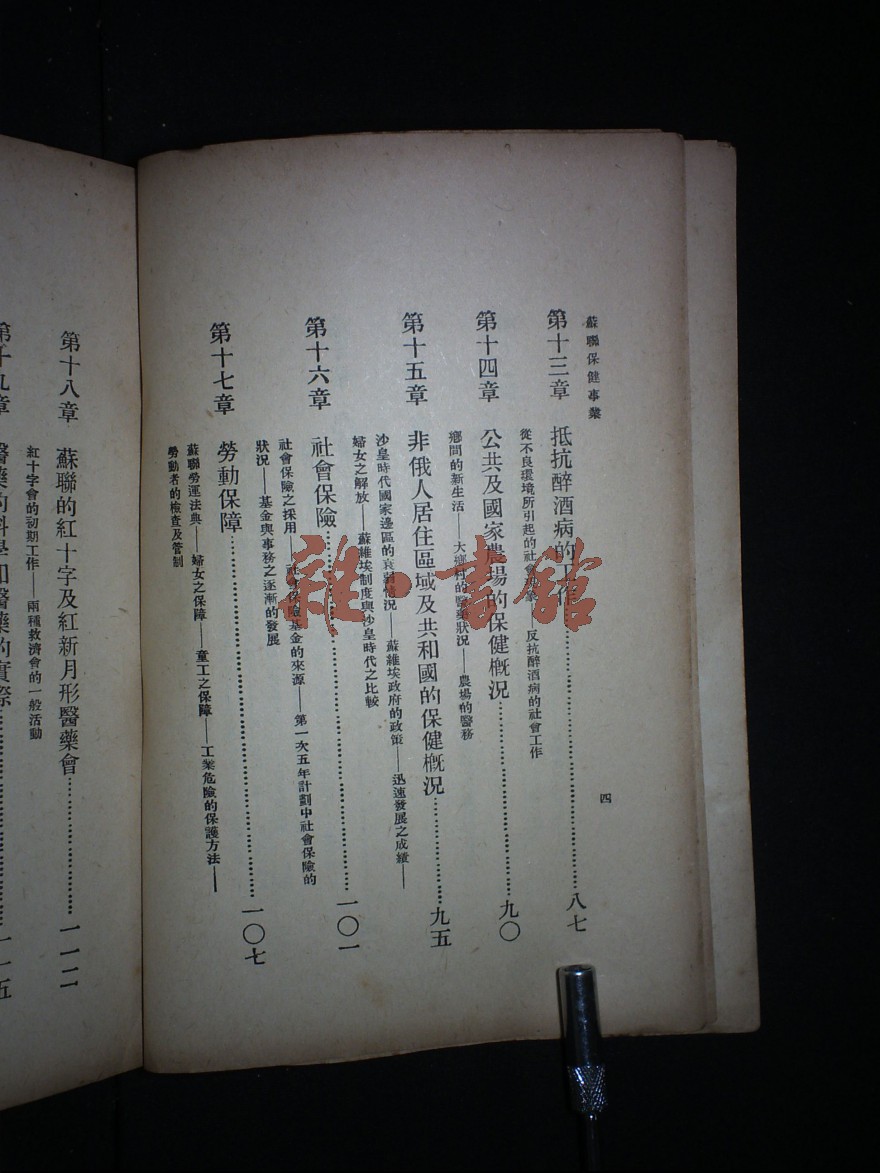 蘇聯保健事業
四
第十三章 抵抗醉酒病的工作……八七
從不良環境所引起的社會現象——反抗醉酒病的社會工作
第十四章 公共及國家農場的保健概況……九〇
鄉間的新生活——大鄉村的醫藥狀況——農場的醫務
第十五章 非俄人居住區域及共和國的保健概況……九五
沙皇時代國家邊區的衰弱情況——蘇維埃政府的政策——迅速發展之成績——
婦女之解放——蘇維埃制度與沙皇時代之比較
第十六章 社會保險……一〇一
社會保險之採用——社會保險基金的來源——第一次五年計劃中社會保險的
狀況——基金與事務之逐漸的發展
第十七章 勞動保障……一〇七
蘇聯勞運法典——婦女之保障——童工之保障——工業危險的保護方法——
勞動者的檢查及管制
第十八章 蘇聯的紅十字及紅新月形醫藥會……一一二
紅十字會的初期工作——兩種救濟會的一般活動
第十九章 醫藥的科學和醫藥的實際……一一五
雜·書館